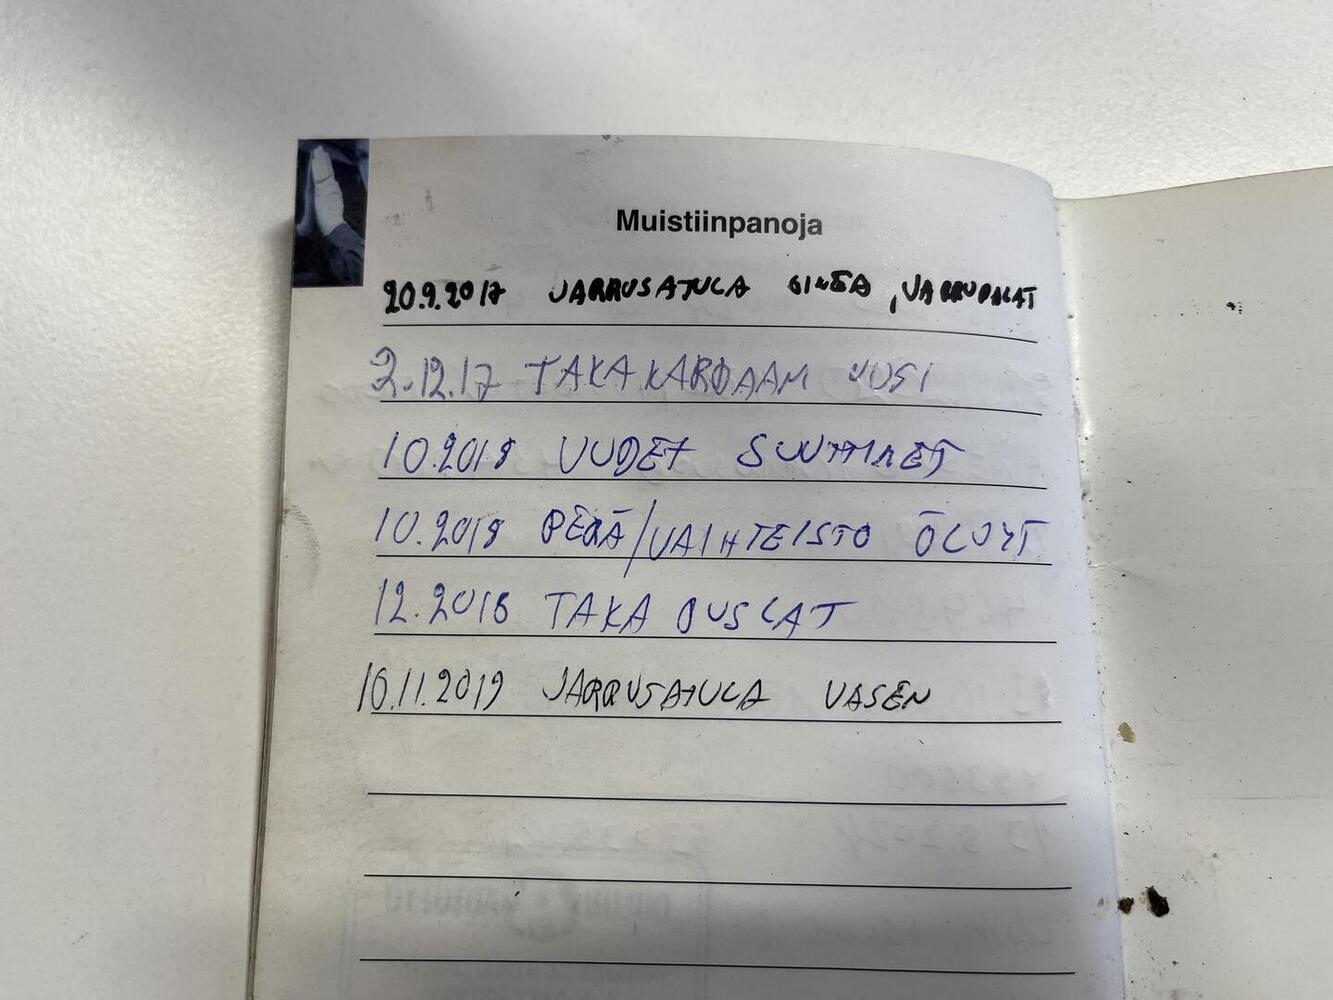 Muistiinpanoja
20.9.2017 JARRUSATULA OIKEA, JARRUPALAT
2.12.17 TAKAKARDAANI UUSI
10.2018 UUDET SUUTTIMET
10.2018 PERÄ/VAIHTEISTO ÖLJYT
12.2018 TAKA PUSLAT
16.11.2019 JARRUSATULA VASEN